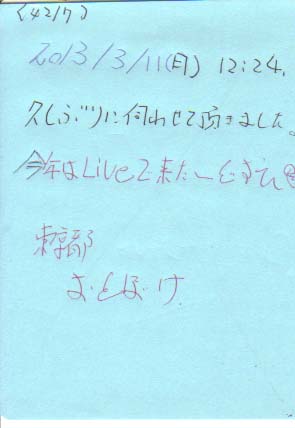 (4217)
2013/3/11(月) 12:24.
久しぶりに伺わせて頂きました。
今年はLiveで来た
東京都
おとぼけ